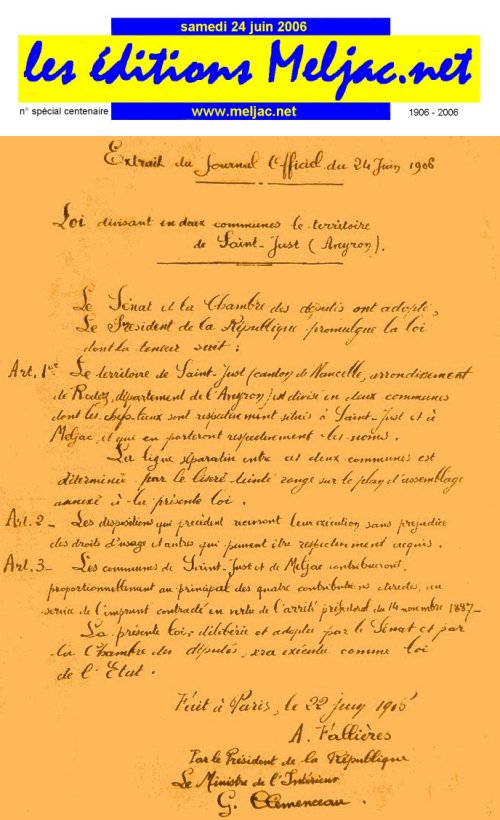 samedi 24 juin 2006
les éditions Meljac.net
n° spécial centenaire
www.meljac.net
1906 - 2006
Extrait du Journal Officiel du 24 Juin 1906
Loi divisant en deux communes le territoire
de Saint-Just (Aveyron).
Le Sénat et la Chambre des députés ont adopté,
Le Président de la République promulgue la loi
dont la teneur suit :
Art. 1er Le territoire de Saint-Just (canton de Naucelle, arrondissement
de Rodez, département de l'Aveyron) est divisé en deux communes
dont les chefs-lieux sont respectivement situés à Saint-Just et à
Meljac, et qui en porteront respectivement les noms.
La ligne séparative entre ces deux communes est
déterminée par le liseré teinté rouge sur le plan d'assemblage
annexé à la présente loi.
Art. 2_ Les dispositions qui précèdent recevront leur exécution sans préjudice
des droits d'usage et autres qui peuvent être respectivement acquis.
Art. 3_ Les communes de Saint-Just et de Meljac contribueront,
proportionnellement au principal des quatre contributions directes, au
service de l'emprunt contracté en vertu de l'arrêté préfectoral du 14 novembre 1887_
La présente loi, délibérée et adoptée par le Sénat et par
la Chambre des députés, sera exécutée comme loi
de l'Etat.
Fait à Paris, le 22 juin 1906
A. Fallières
Par le Président de la République
Le Ministre de l'Intérieur
G. Clemenceau.